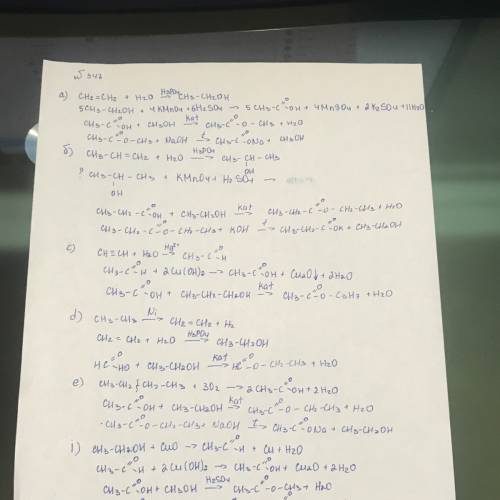 № 342
a) CH2=CH2 + H2O –H3PO4→ CH3-CH2OH
5CH3-CH2OH + 4KMnO4 + 6H2SO4 → 5CH3-C(=O)OH + 4MnSO4 + 2K2SO4 + 11H2O
CH3-C(=O)OH + CH3OH –kat→ CH3-C(=O)-O-CH3 + H2O
CH3-C(=O)-O-CH3 + NaOH –t→ CH3-C(=O)ONa + CH3OH
б) CH3-CH=CH2 + H2O –H3PO4→ CH3-CH(OH)-CH3
? CH3-CH(OH)-CH3 + KMnO4 + H2SO4 →
CH3-CH2-C(=O)OH + CH3-CH2OH –kat→ CH3-CH2-C(=O)-O-CH2-CH3 + H2O
CH3-CH2-C(=O)-O-CH2-CH3 + KOH –t→ CH3-CH2-C(=O)OK + CH3-CH2OH
c) CH≡CH + H2O –Hg2+→ CH3-C(=O)H
CH3-C(=O)H + 2Cu(OH)2 → CH3-C(=O)OH + Cu2O↓ + 2H2O
CH3-C(=O)OH + CH3-CH2-CH2OH –kat→ CH3-C(=O)-O-C3H7 + H2O
d) CH3-CH3 –Ni→ CH2=CH2 + H2
CH2=CH2 + H2O –H3PO4→ CH3-CH2OH
HC(=O)HO + CH3-CH2OH –kat→ HC(=O)-O-CH2-CH3 + H2O
e) CH3-CH2{CH2-CH3 + 3O2 → 2CH3-C(=O)OH + 2H2O
CH3-C(=O)OH + CH3-CH2OH –kat→ CH3-C(=O)-O-CH2-CH3 + H2O
CH3-C(=O)-O-CH2-CH3 + NaOH –t→ CH3-C(=O)ONa + CH3-CH2OH
i) CH3-CH2OH + CuO → CH3-C(=O)H + Cu + H2O
CH3-C(=O)H + 2Cu(OH)2 → CH3-C(=O)OH + Cu2O + 2H2O
CH3-C(=O)OH + CH3OH –H2SO4→ CH3-C(=O)-O-CH3 + H2O